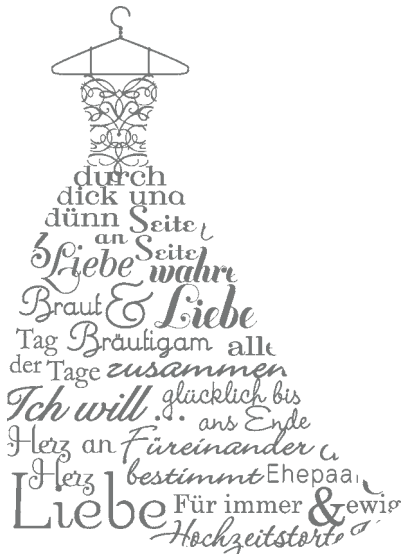 durch
dick und
dünn Seite
an Seite
Liebe wahre
Braut & Liebe
Tag Bräutigam alle
der Tage zusammen
Ich will ... glücklich bis
ans Ende
Herz an Füreinander
Herz bestimmt Ehepaar
Liebe Für immer & ewig
Hochzeitstorte